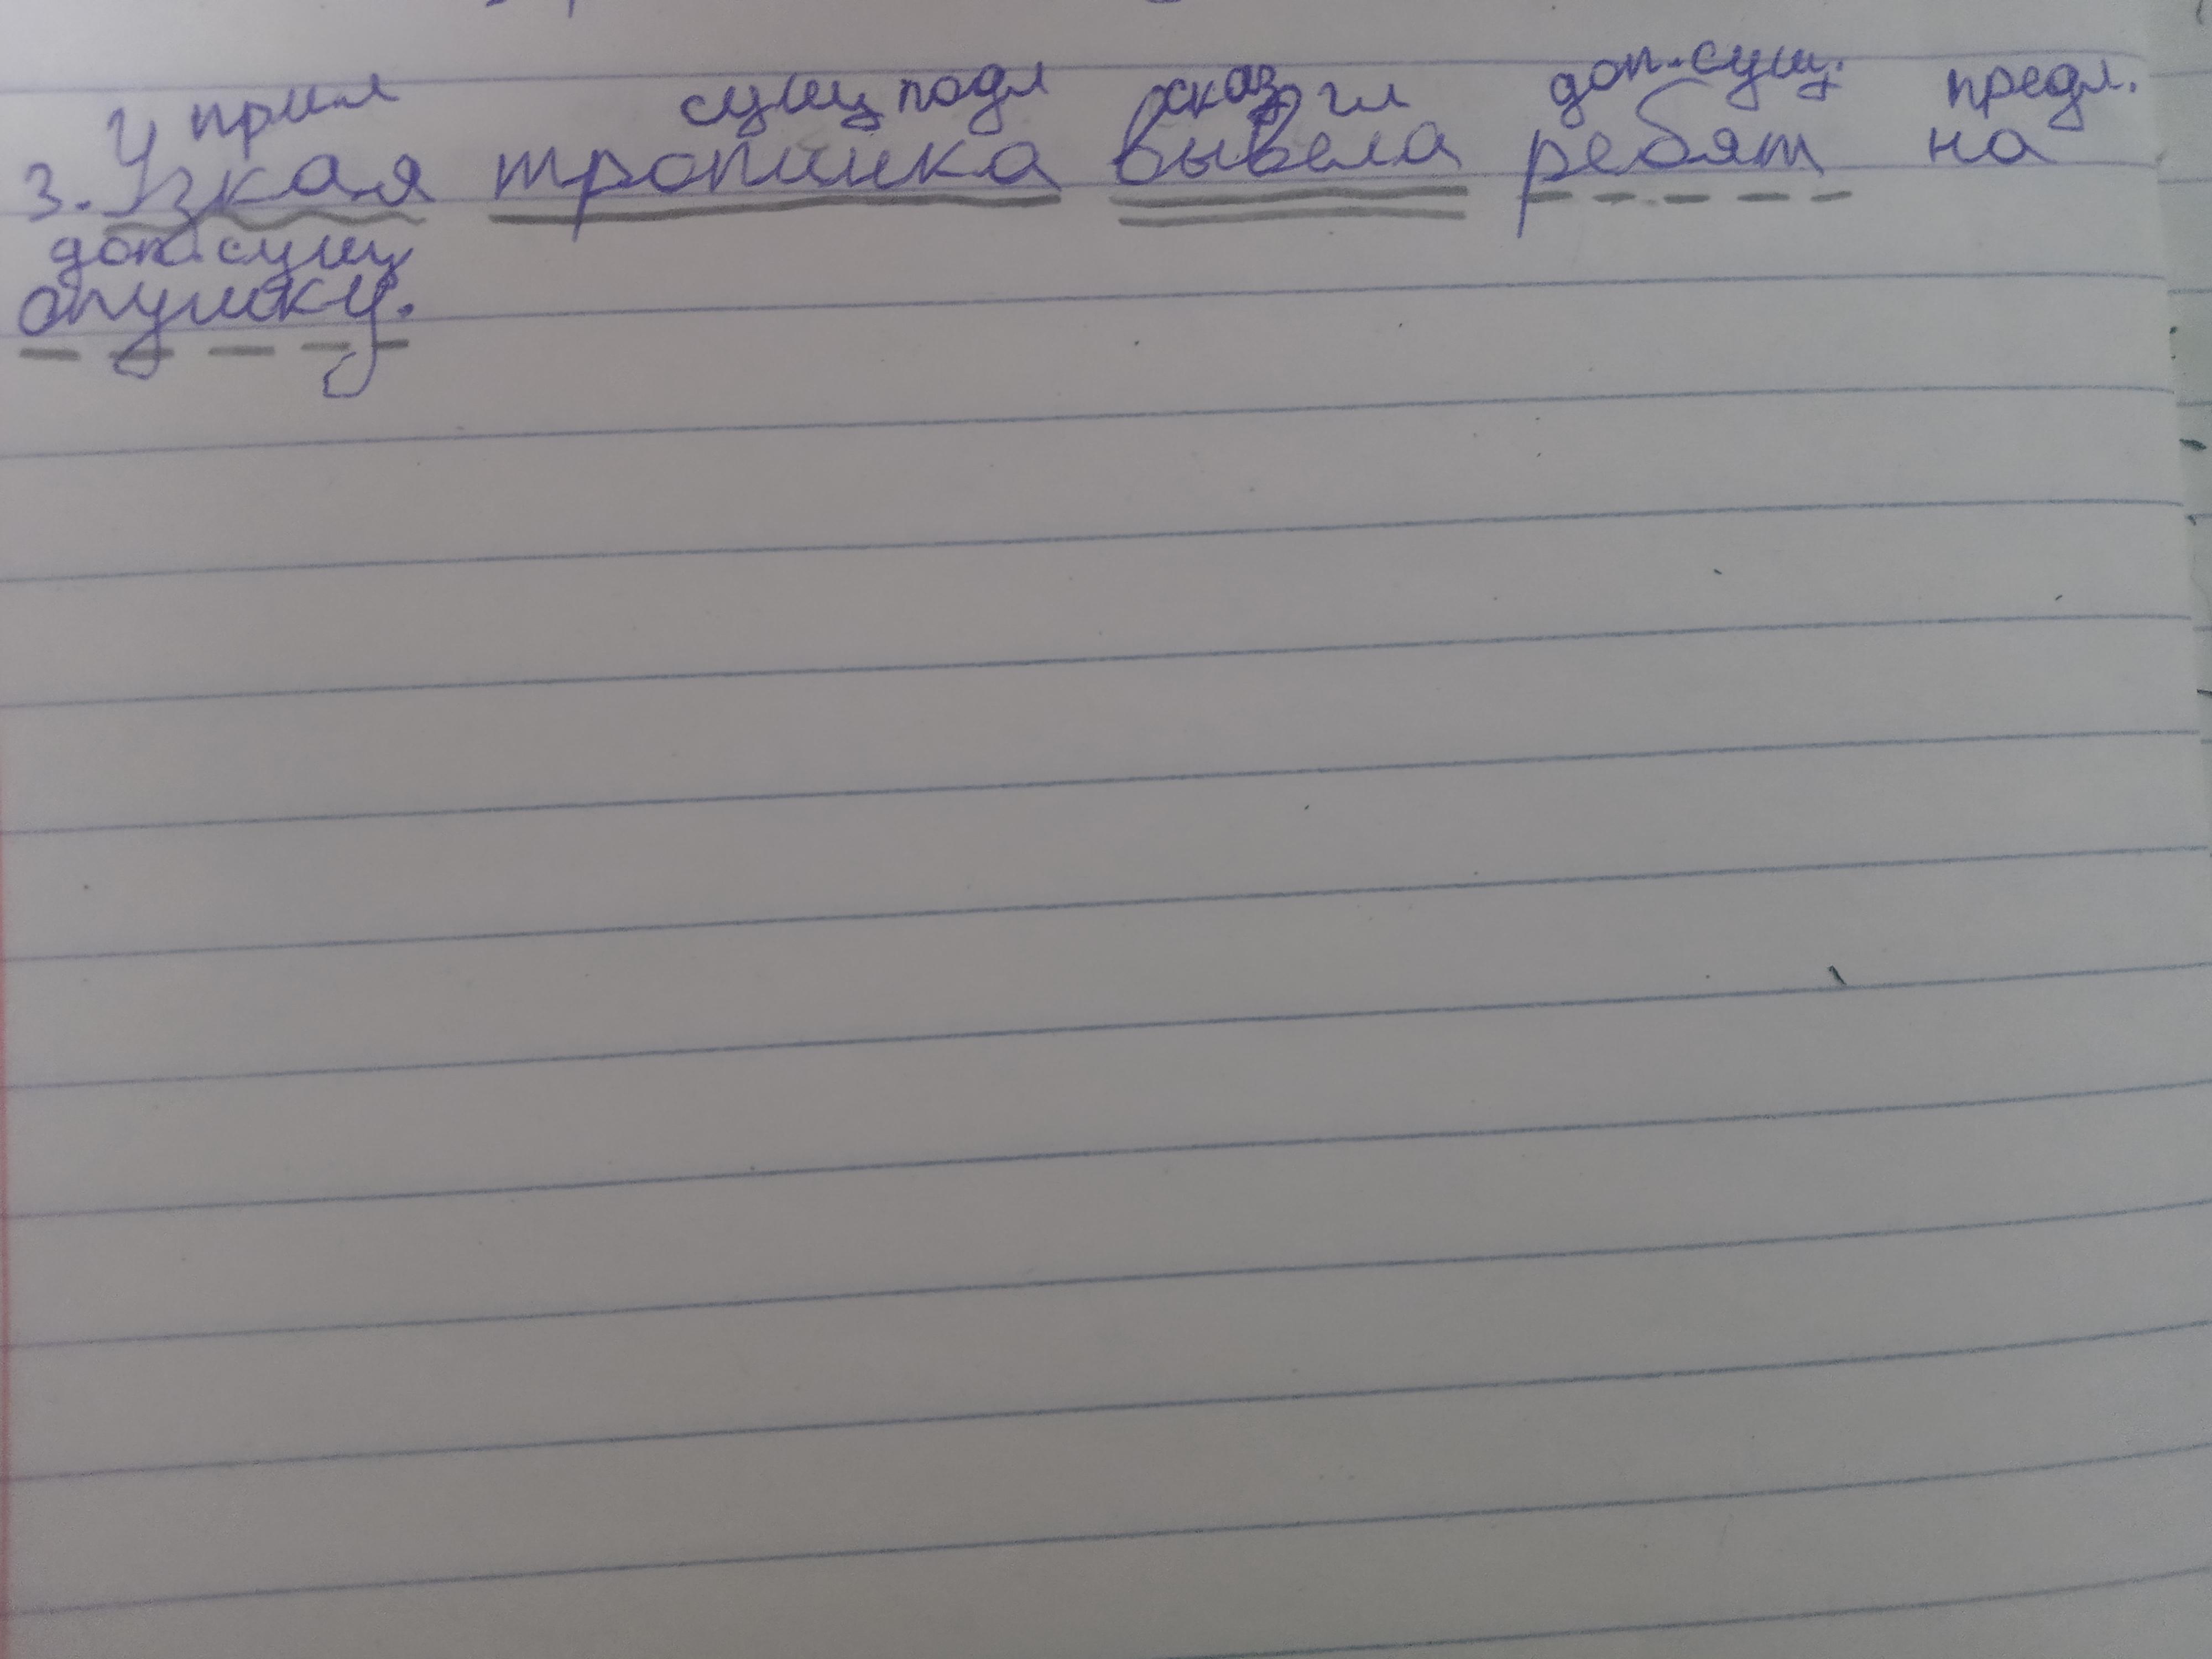 прил сущ подл сказ гл доп. сущ. предл.
3. Узкая тропинка вывела ребят на
доп. сущ
опушку.